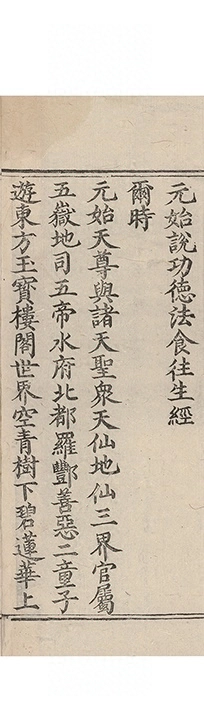 元始說功德法食往生經
爾時
元始天尊與諸天聖衆天仙地仙三界官屬
五嶽地司五帝水府北都羅酆善惡二童子
遊東方玉寶樓閣世界空青樹下碧蓮華上